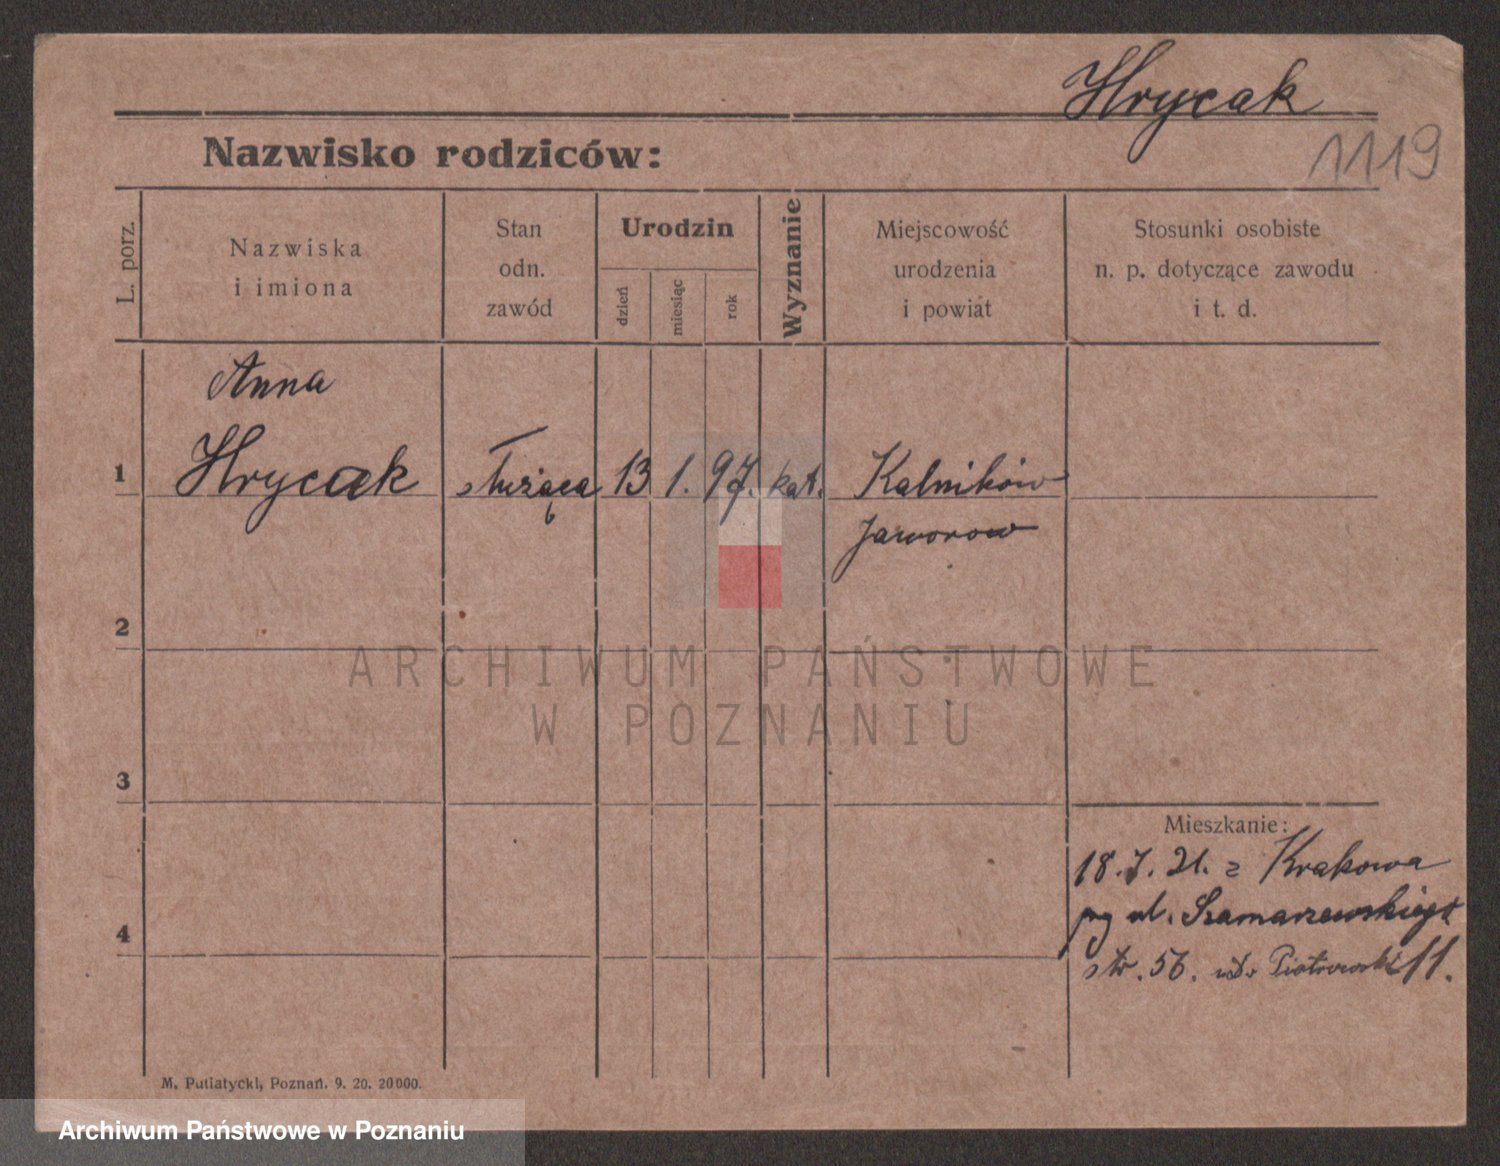 Hrycak
1119
Nazwisko rodziców:
L. porz.
Nazwiska
i imiona
Stan
odn.
zawód
Urodzin
dzień
miesiąc
rok
Wyznanie
Miejscowość
urodzenia
i powiat
Stosunki osobiste
n. p. dotyczące zawodu
i t. d.
Anna
1 Hrycak służąca 13 1. 97. kat. Kalników
Jaworow
2
ARCHIWUM PAŃSTWOWE
W POZNANIU
3
Mieszkanie:
18. 7. 21. z Krakowa
ul. Szamarzewskiego
4
str. 56. Piotrowski 11.
M. Putiatycki, Poznań. 9. 20. 20000.
Archiwum Państwowe w Poznaniu